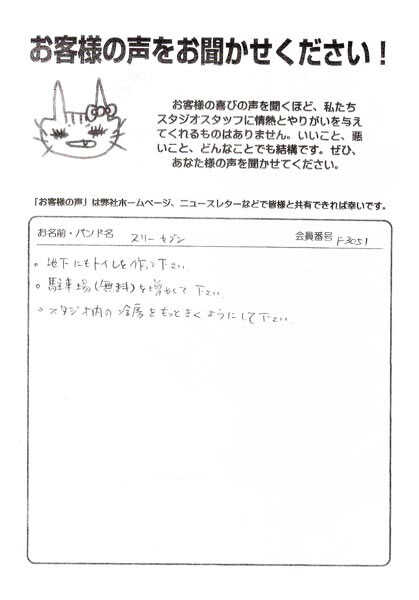 お客様の声をお聞かせください！
お客様の喜びの声を聞くほど、私たち
スタジオスタッフに情熱とやりがいを与え
てくれるものはありません。いいこと、悪
いこと、どんなことでも結構です。ぜひ、
あなた様の声を聞かせてください。
「お客様の声」は弊社ホームページ、ニュースレターなどで皆様と共有できれば幸いです。
お名前・バンド名 スリーセブン 会員番号 F3051
○ 地下にもトイレを作って下さい
○ 駐車場(無料)を増やして下さい
○ スタジオ内の冷房をもっときくようにして下さい